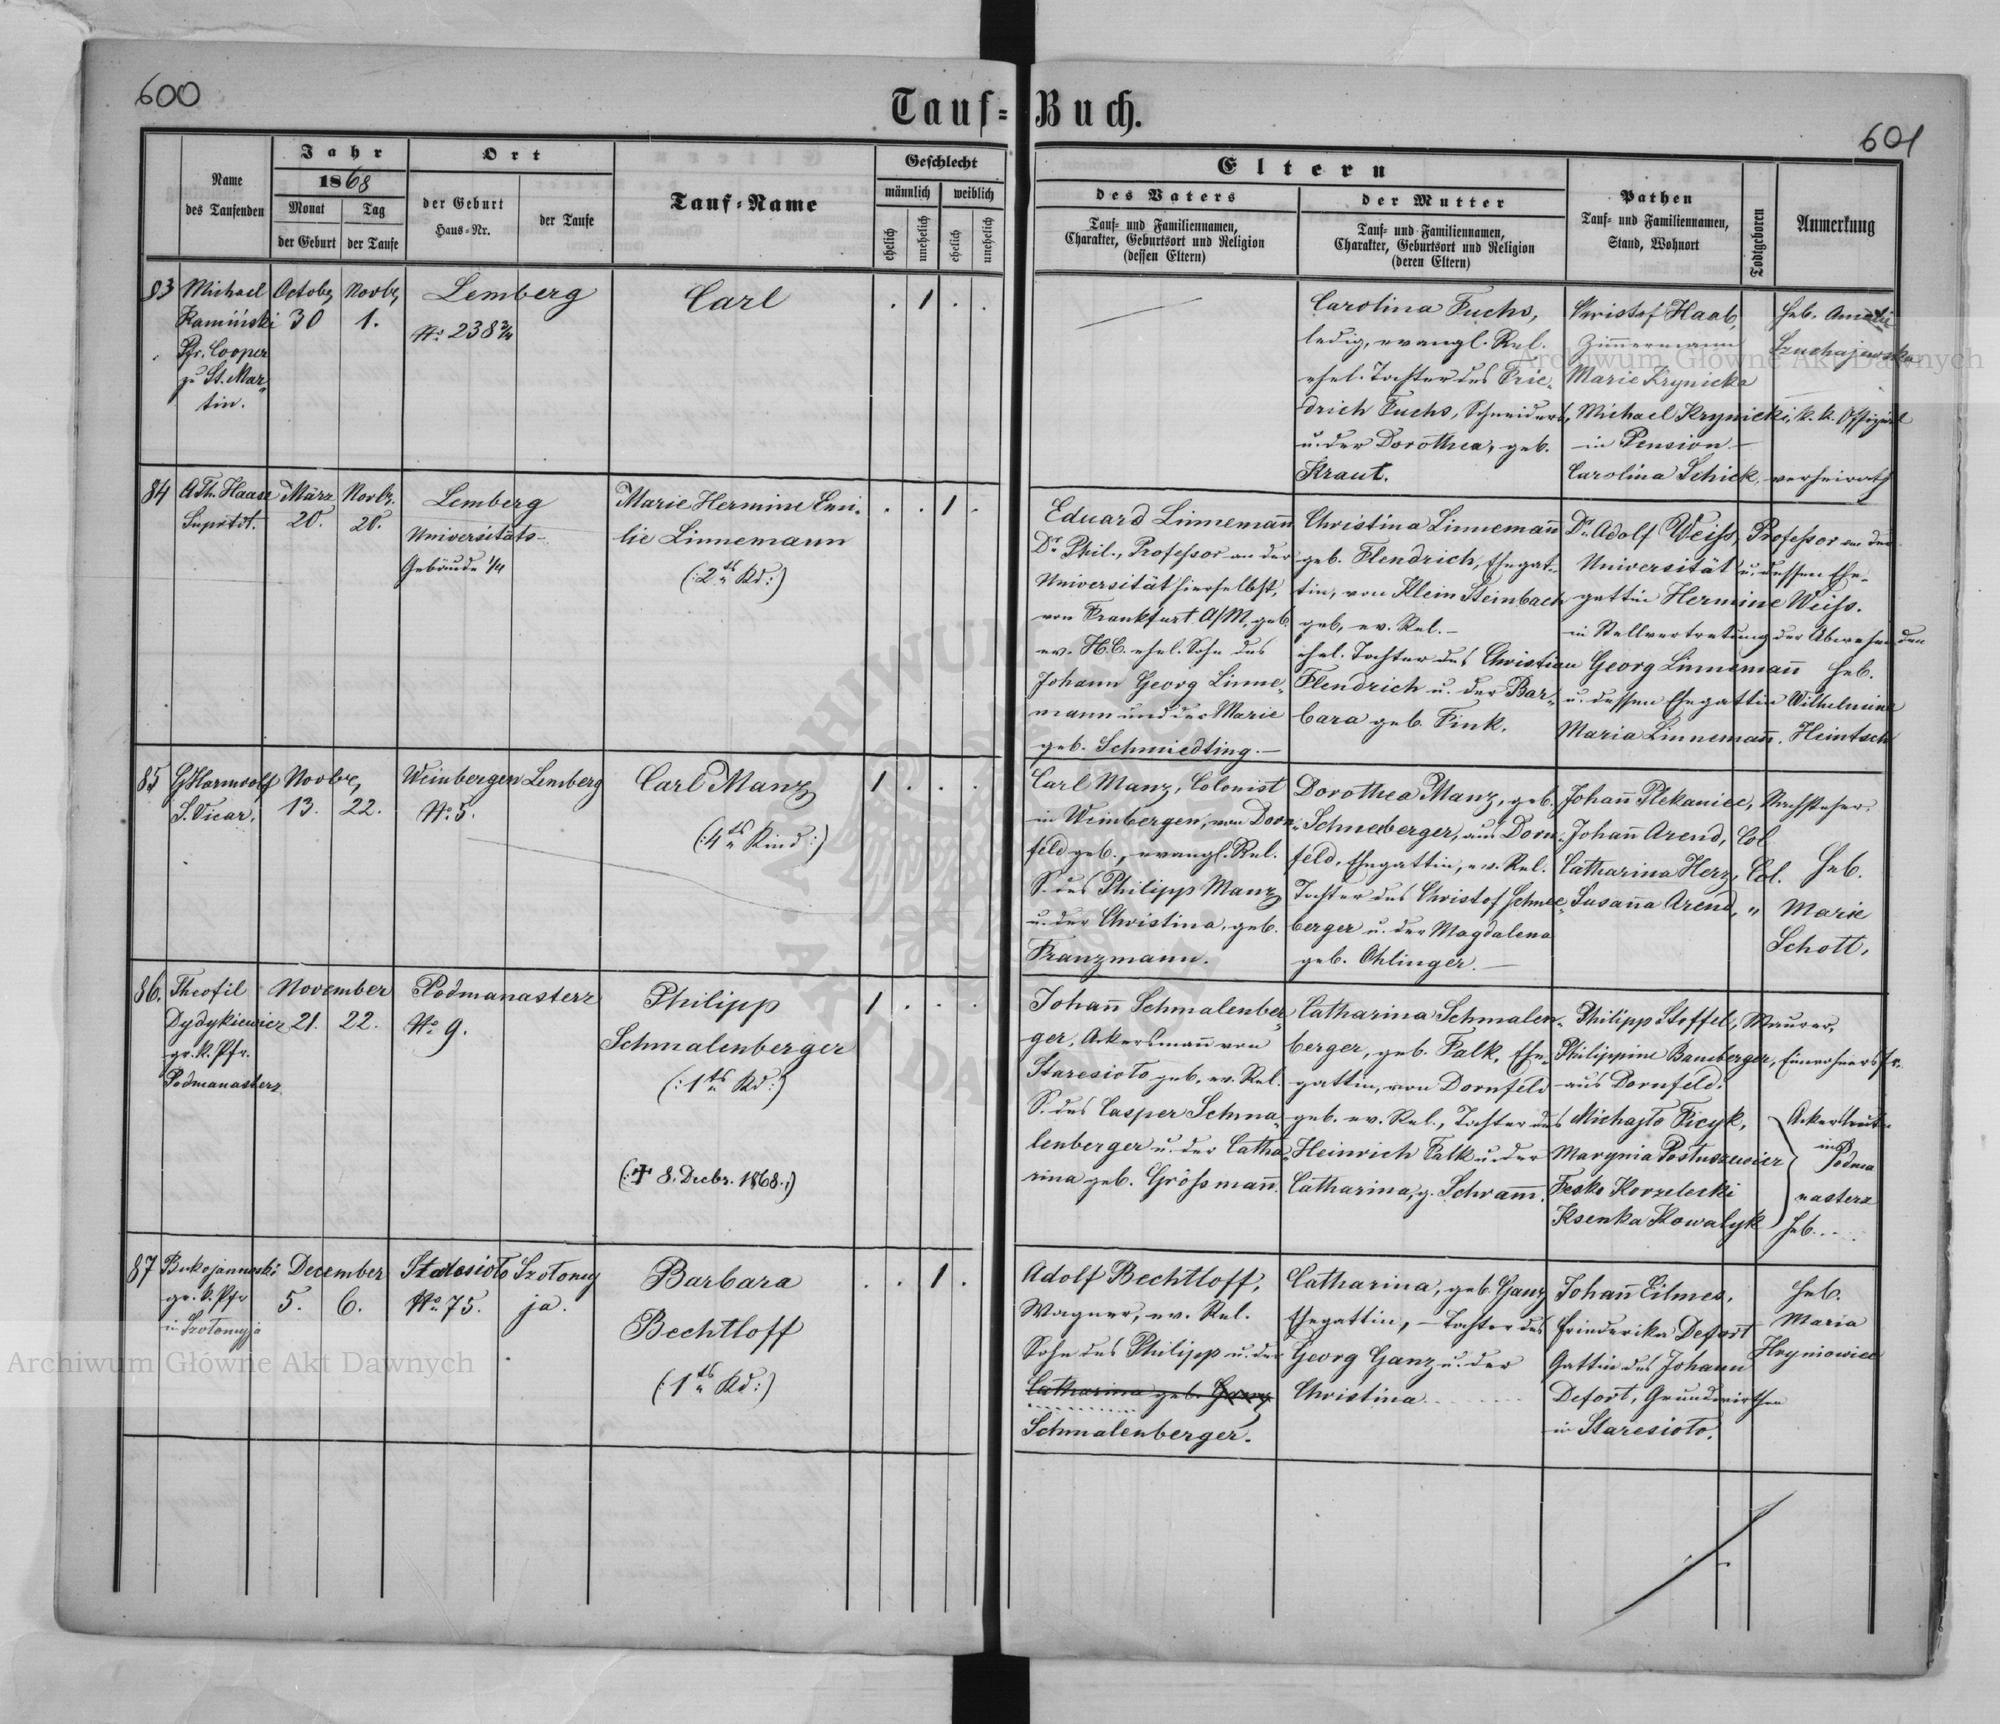 600
Tauf-Buch.
601
Name
des Taufenden
Jahr
1868
Monat
der Geburt
Tag
der Taufe
Ort
der Geburt
Haus-Nr.
der Taufe
Tauf-Name
Geschlecht
männlich
weiblich
ehelich
unehelich
ehelich
unehelich
Eltern
des Vaters
Tauf- und Familiennamen,
Charakter, Geburtsort und Religion
(dessen Eltern)
der Mutter
Tauf- und Familiennamen,
Charakter, Geburtsort und Religion
(deren Eltern)
Pathen
Tauf- und Familiennamen,
Stand, Wohnort
Todtgeboren
Anmerkung
83
Michael
Kamiński
Pfr. Cooper
zu St. Mar-
tin.
October
30
Novbr,
1.
Lemberg
No. 238 2/4
Carl
. 1 . .
Carolina Fuchs,
ledig, evangl. Rel.
ehel. Tochter des Frie-
drich Fuchs, Schneiders,
u. der Dorothea, geb.
Kraut.
Christof Haab,
Zimmermann
Marie Krynicka
Michael Krynicki, k. k. Offizial
in Pension –
Carolina Schick, verheirath
Heb. Amalie
Szuchajewska
84
A Th. Haase
Suprtdt.
März
20.
Novbr.
20.
Lemberg
Universitäts-
Gebäude 1/4
Marie Hermine Emi-
lie Linnemann
(: 2ts Kd :)
. . 1 .
Eduard Linnemann
Dr Phil., Professor an der
Universität hierselbst,
von Frankfurt A/M, geb.
ev. H.C. ehel. Sohn des
Johann Georg Linne-
mann und der Marie
geb. Schmiedting. –
Christina Linnemann
geb. Flendrich, Ehegat-
tin, von Klein Steinbach
geb, ev. Rel. –
ehel. Tochter des Christian
Flendrich u. der Bar-
bara geb. Fink.
Dr. Adolf Weiss, Professor an der
Universität u. dessen Ehe-
gattin Hermine Weiss.
in Stellvertretung der Abwesenden
Georg Linnemann
u. dessen Ehegattin
Maria Linnemann.
Heb.
Wilhelmine
Heintsch
85
G Harmdolf
S. Vicar,
Novbr,
13.
22.
Weinbergen
No. 5.
Lemberg
Carl Manz
(: 4ts Kind :)
1 . . .
Carl Manz, Colonist
in Weinbergen, von Dorn-
feld geb., evangl. Rel.
S. des Philipp Manz
u. der Christina, geb.
Franzmann.
Dorothea Manz, geb.
Schneeberger, aus Dorn-
feld, Ehegattin, ev. Rel.
Tochter des Christof Schnee-
berger u. der Magdalena
geb. Ohlinger. –
Johann Plekaniec,
Johann Arend, Col
Catharina Herz, Col.
Susanna Arend, "
Heb.
Marie
Schott,
86.
Theofil
Dydykiewicz
gr. k. Pfr.
Podmanasterz
November
21.
22.
Podmanasterz
No. 9.
Philipp
Schmalenberger
(: 1ts Kd :)
(: + 8. Decbr. 1868. :)
1 . . .
Johann Schmalenber-
ger, Ackersmann von
Staresioło geb. ev. Rel.
S. des Casper Schma-
lenberger u. der Catha-
rina geb. Grössmann.
Catharina Schmalen-
berger, geb. Falk, Ehe-
gattin, von Dornfeld
geb. ev. Rel., Tochter des
Heinrich Falk u. der
Catharina, g. Schramm.
Philipp Stoffel, Maurer,
Philippine Bamberger, Einwohnersfr.
aus Dornfeld.
Michajło Ficyk,
Marynia Postuszewicz
Fesko Korzelecki
Ksenka Kowalyk
Ackersleute
in Podma
nasterz
Heb. . .
87
Bukojannoski
gr. k. Pfr
in Szołomyja
December
5.
6.
Staresioło
No. 75.
Szołomy
ja.
Barbara
Bechtloff
(: 1ts Kd :)
. . 1 .
Adolf Bechtloff,
Wagner, ev. Rel.
Sohn des Philipp u. der
Catharina geb. Ganz
Schmalenberger.
Catharina, geb. Ganz
Ehegattin, – Tochter des
Georg Ganz u. der
Christina
Johann Eilmes,
Friederika Defort
Gattin des Johann
Defort, Grundwirthen
in Staresioło.
Heb.
Maria
Hryniowiec
Archiwum Główne Akt Dawnych
Archiwum Główne Akt Dawnych